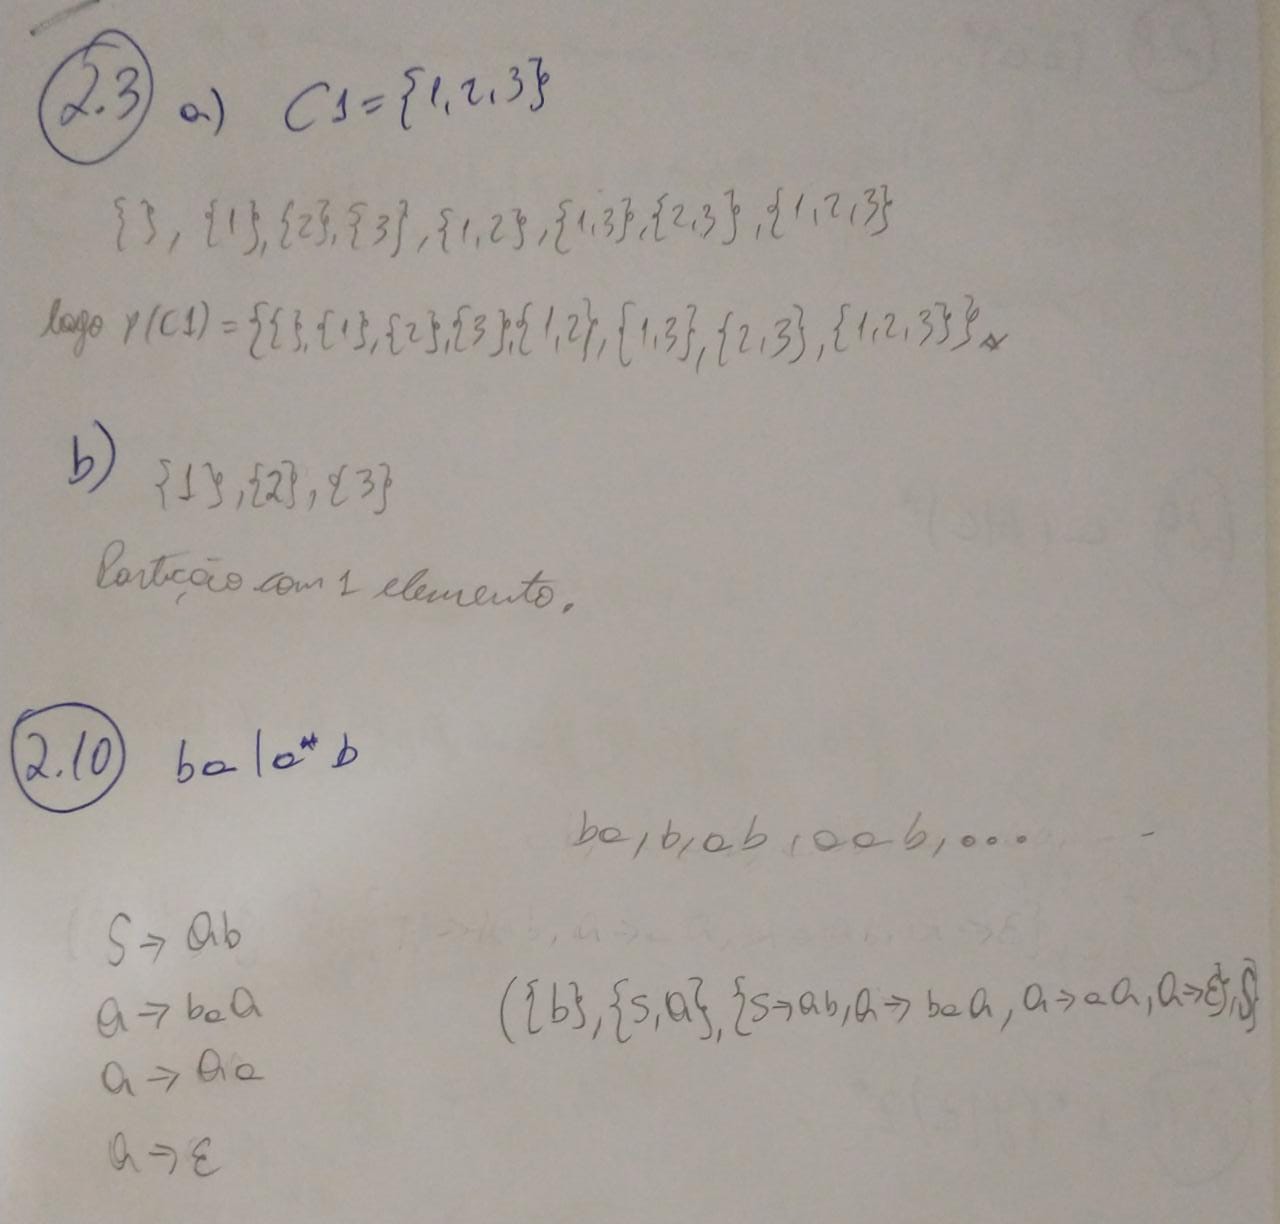 2.3 a) C1={1,2,3}
{}, {1},{2},{3},{1,2},{1,3},{2,3},{1,2,3}
logo P(C1)={{},{1},{2},{3},{1,2},{1,3},{2,3},{1,2,3}}
b) {1},{2},{3}
Partição com 1 elemento.
2.10 ba|a*b
ba,b,ab,aab,...
S→Ab
A→baA
A→Aa
A→ε
({b},{S,A},{S→Ab,A→baA,A→aA,A→ε},S)